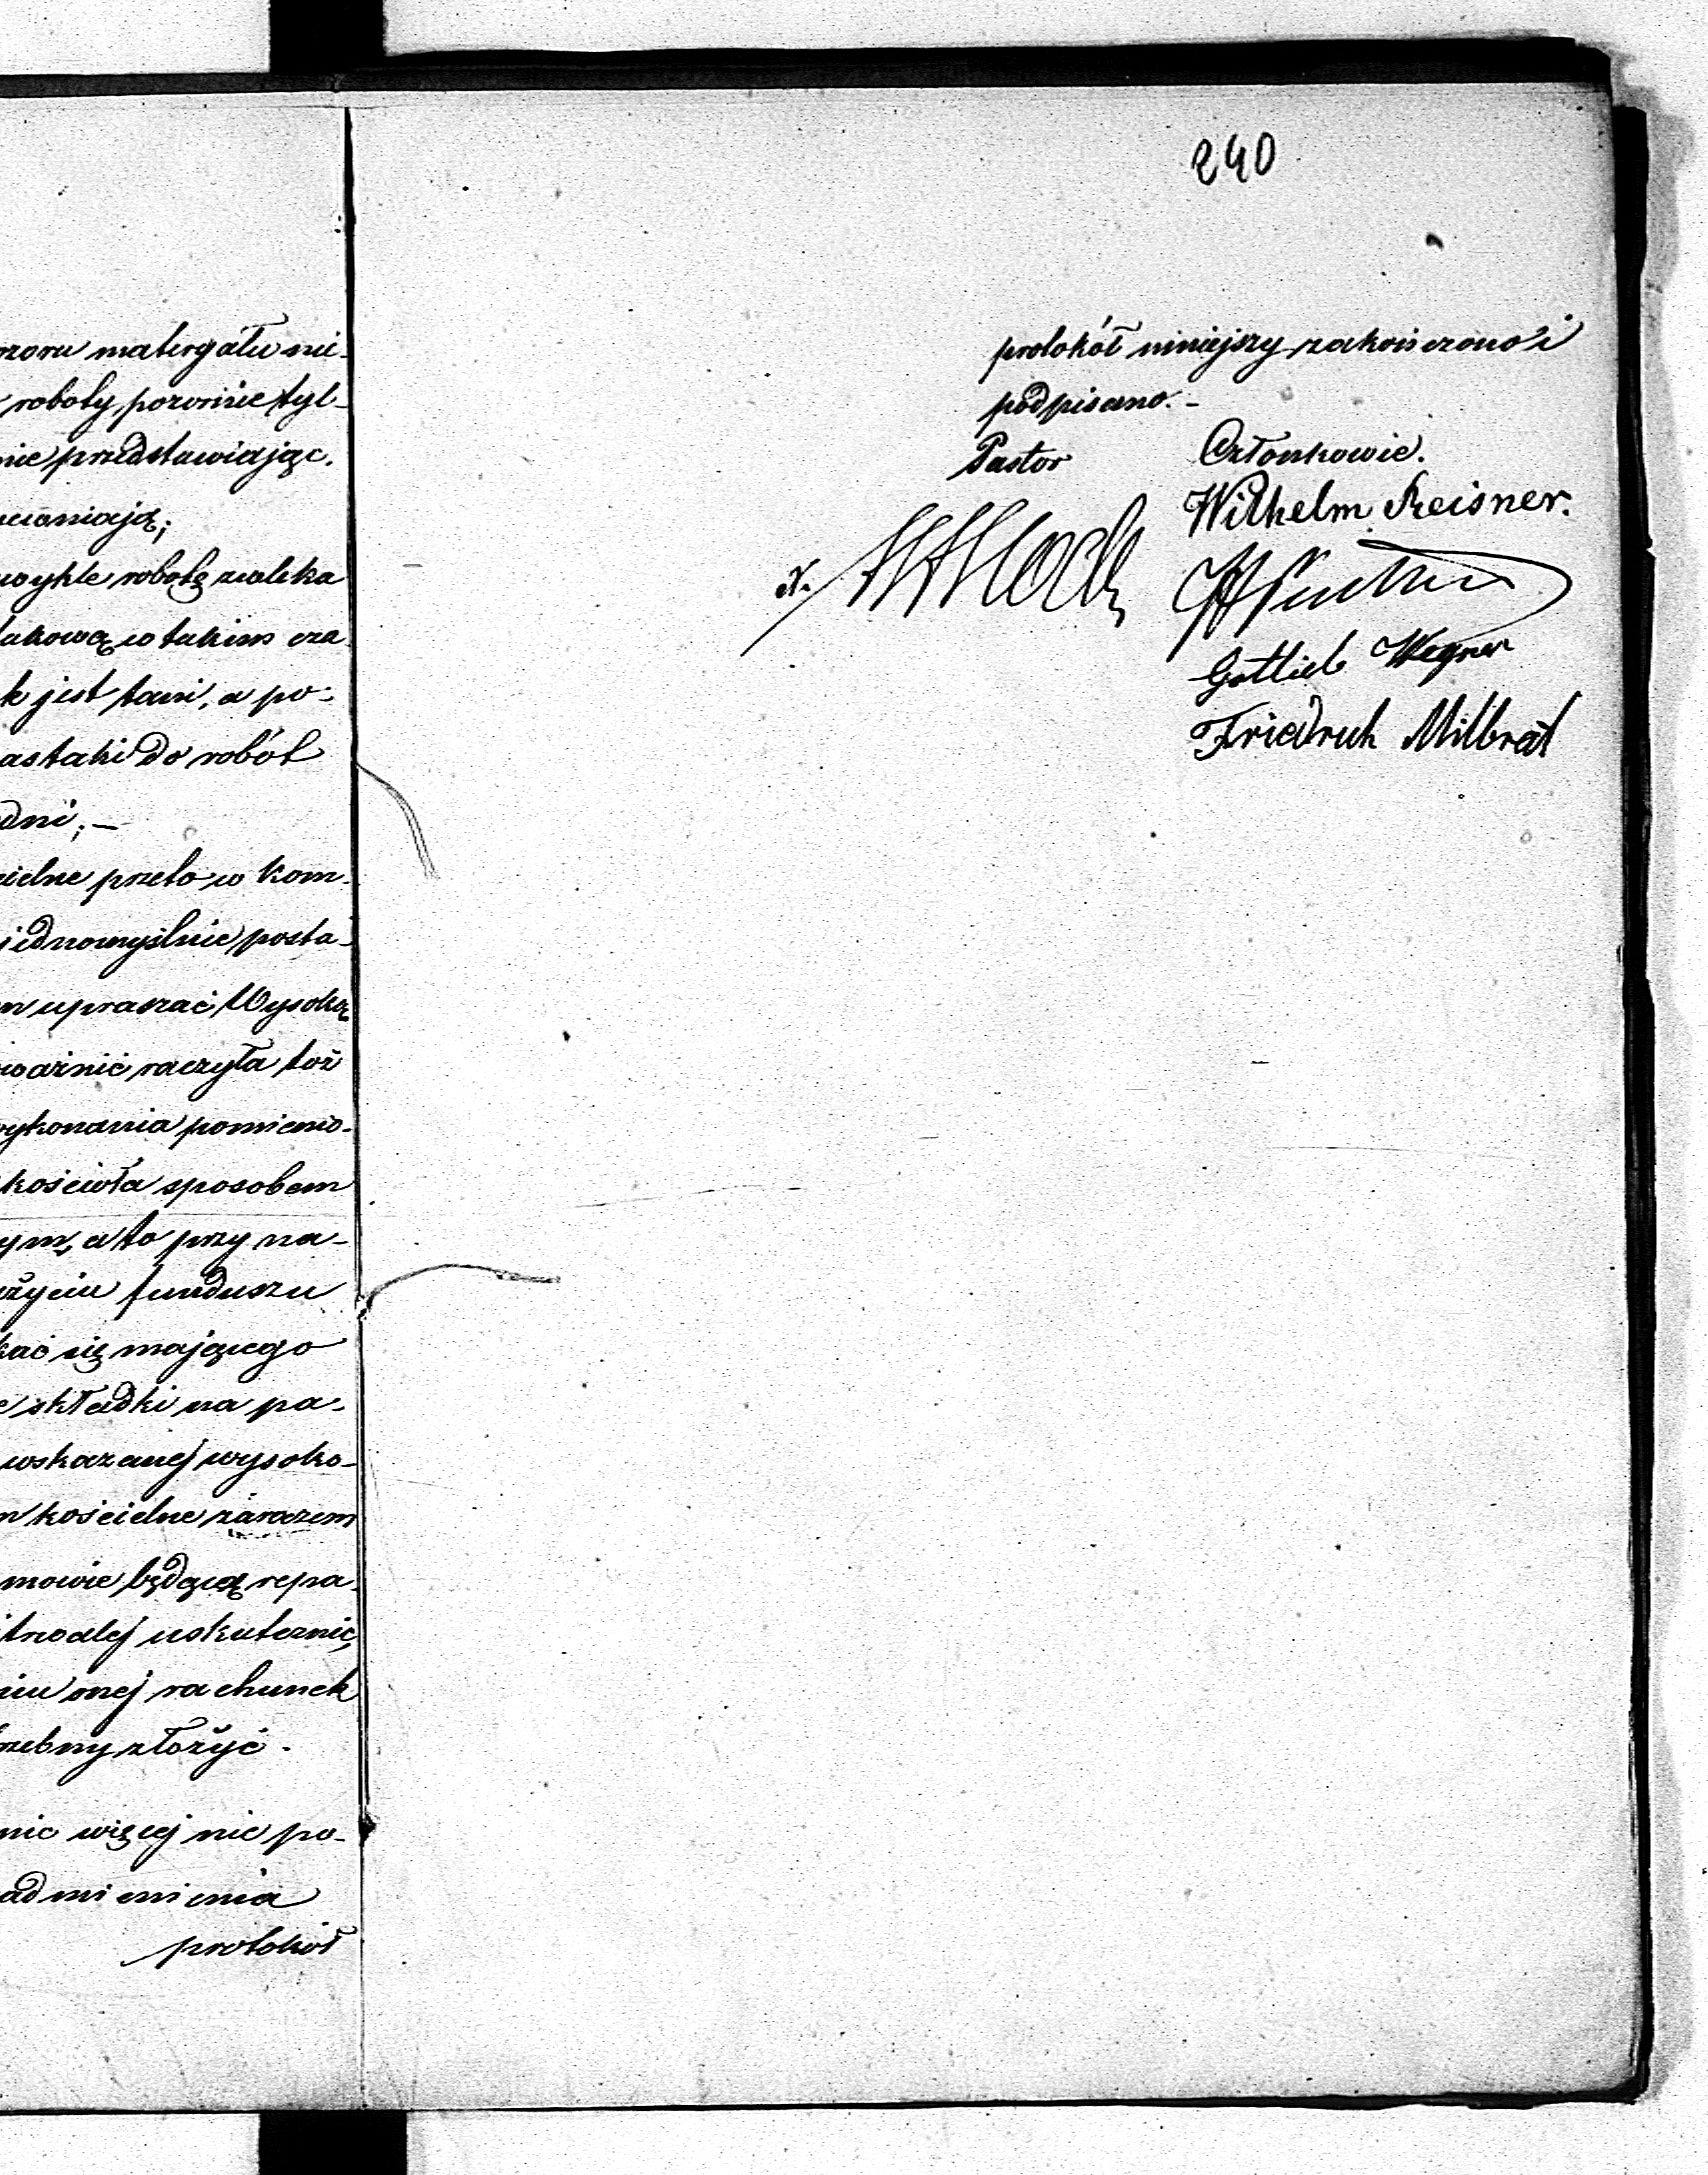 rzoru materyału nie-
roboty, pozornie tyl-
nie przedstawiając.
wykle robotę zwleka
takową w takim cza
k jest tani, a po-
astaki do robót
dni; —
ielne przeto w kom-
jednomyślnie posta-
m upraszać Wysoką
ważnić raczyła toż
wykonania pomienio-
kościoła sposobem
ym, a to przy na-
użyciu funduszu
kać się mającego
e składki na pa-
wskazanej wysoko-
m kościelne zarazem
mowie będącą repa-
trwalej uskutecznić,
niu onej rachunek
rzebny złożyć.
nic więcej nie po-
admienienia
protokół
240
protokół niniejszy zakończono i
podpisano. -
Pastor
Członkowie.
Wilhelm Reisner.
Gottlieb Wegner
Friedrich Milbrat